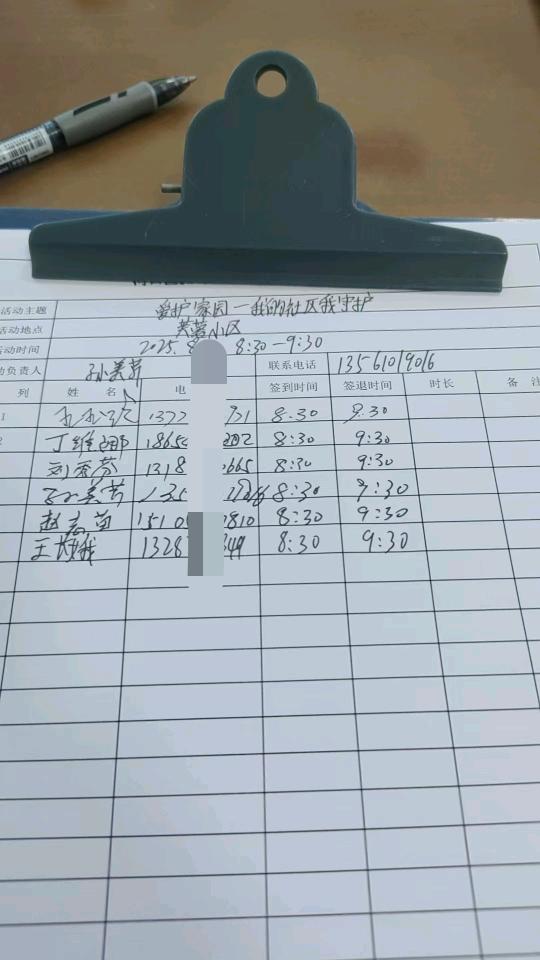 活动主题 爱护家园一我的社区我守护
活动地点 芙蓉小区
活动时间 2025. 8 8:30-9:30
动负责人 孙美芹 联系电话 1356101906
列 姓 名 电 签到时间 签退时间 时长 备 注
1 137 31 8:30 9:30
2 丁维娜 1865 202 8:30 9:30
刘秀芬 1318 0665 8:30 9:30
孙美芹 135 8:30 9:30
赵 苗 1510 0810 8:30 9:30
王 我 1328 349 8:30 9:30